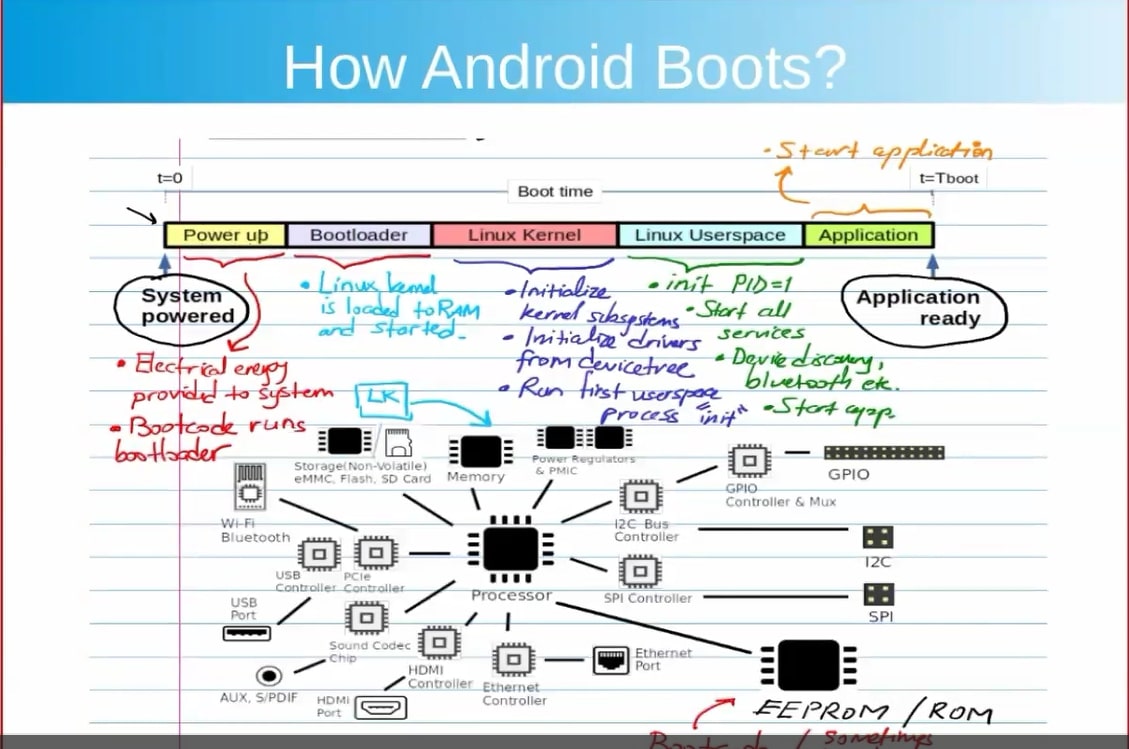 How Android Boots?
• Start application
t=0
Boot time
t=Tboot
Power up
Bootloader
Linux Kernel
Linux Userspace
Application
System
powered
Application
ready
• Electrical energy
provided to system
• Bootcode runs
bootloader
• Linux kernel
is loaded to RAM
and started.
• Initialize
kernel subsystems
• Initialize drivers
from devicetree
• Run first userspace
process "init"
• init PID=1
• Start all
services
• Device discovery,
bluetooth etc.
• Start app.
LK
Storage(Non-Volatile)
eMMC, Flash, SD Card
Memory
Power Regulators
& PMIC
GPIO
Controller & Mux
GPIO
Wi-Fi
Bluetooth
I2C Bus
Controller
I2C
USB
Controller
PCIe
Controller
Processor
SPI Controller
SPI
USB
Port
Sound Codec
Chip
HDMI
Controller
Ethernet
Controller
Ethernet
Port
AUX, S/PDIF
HDMI
Port
EEPROM / ROM
/ Sometimes